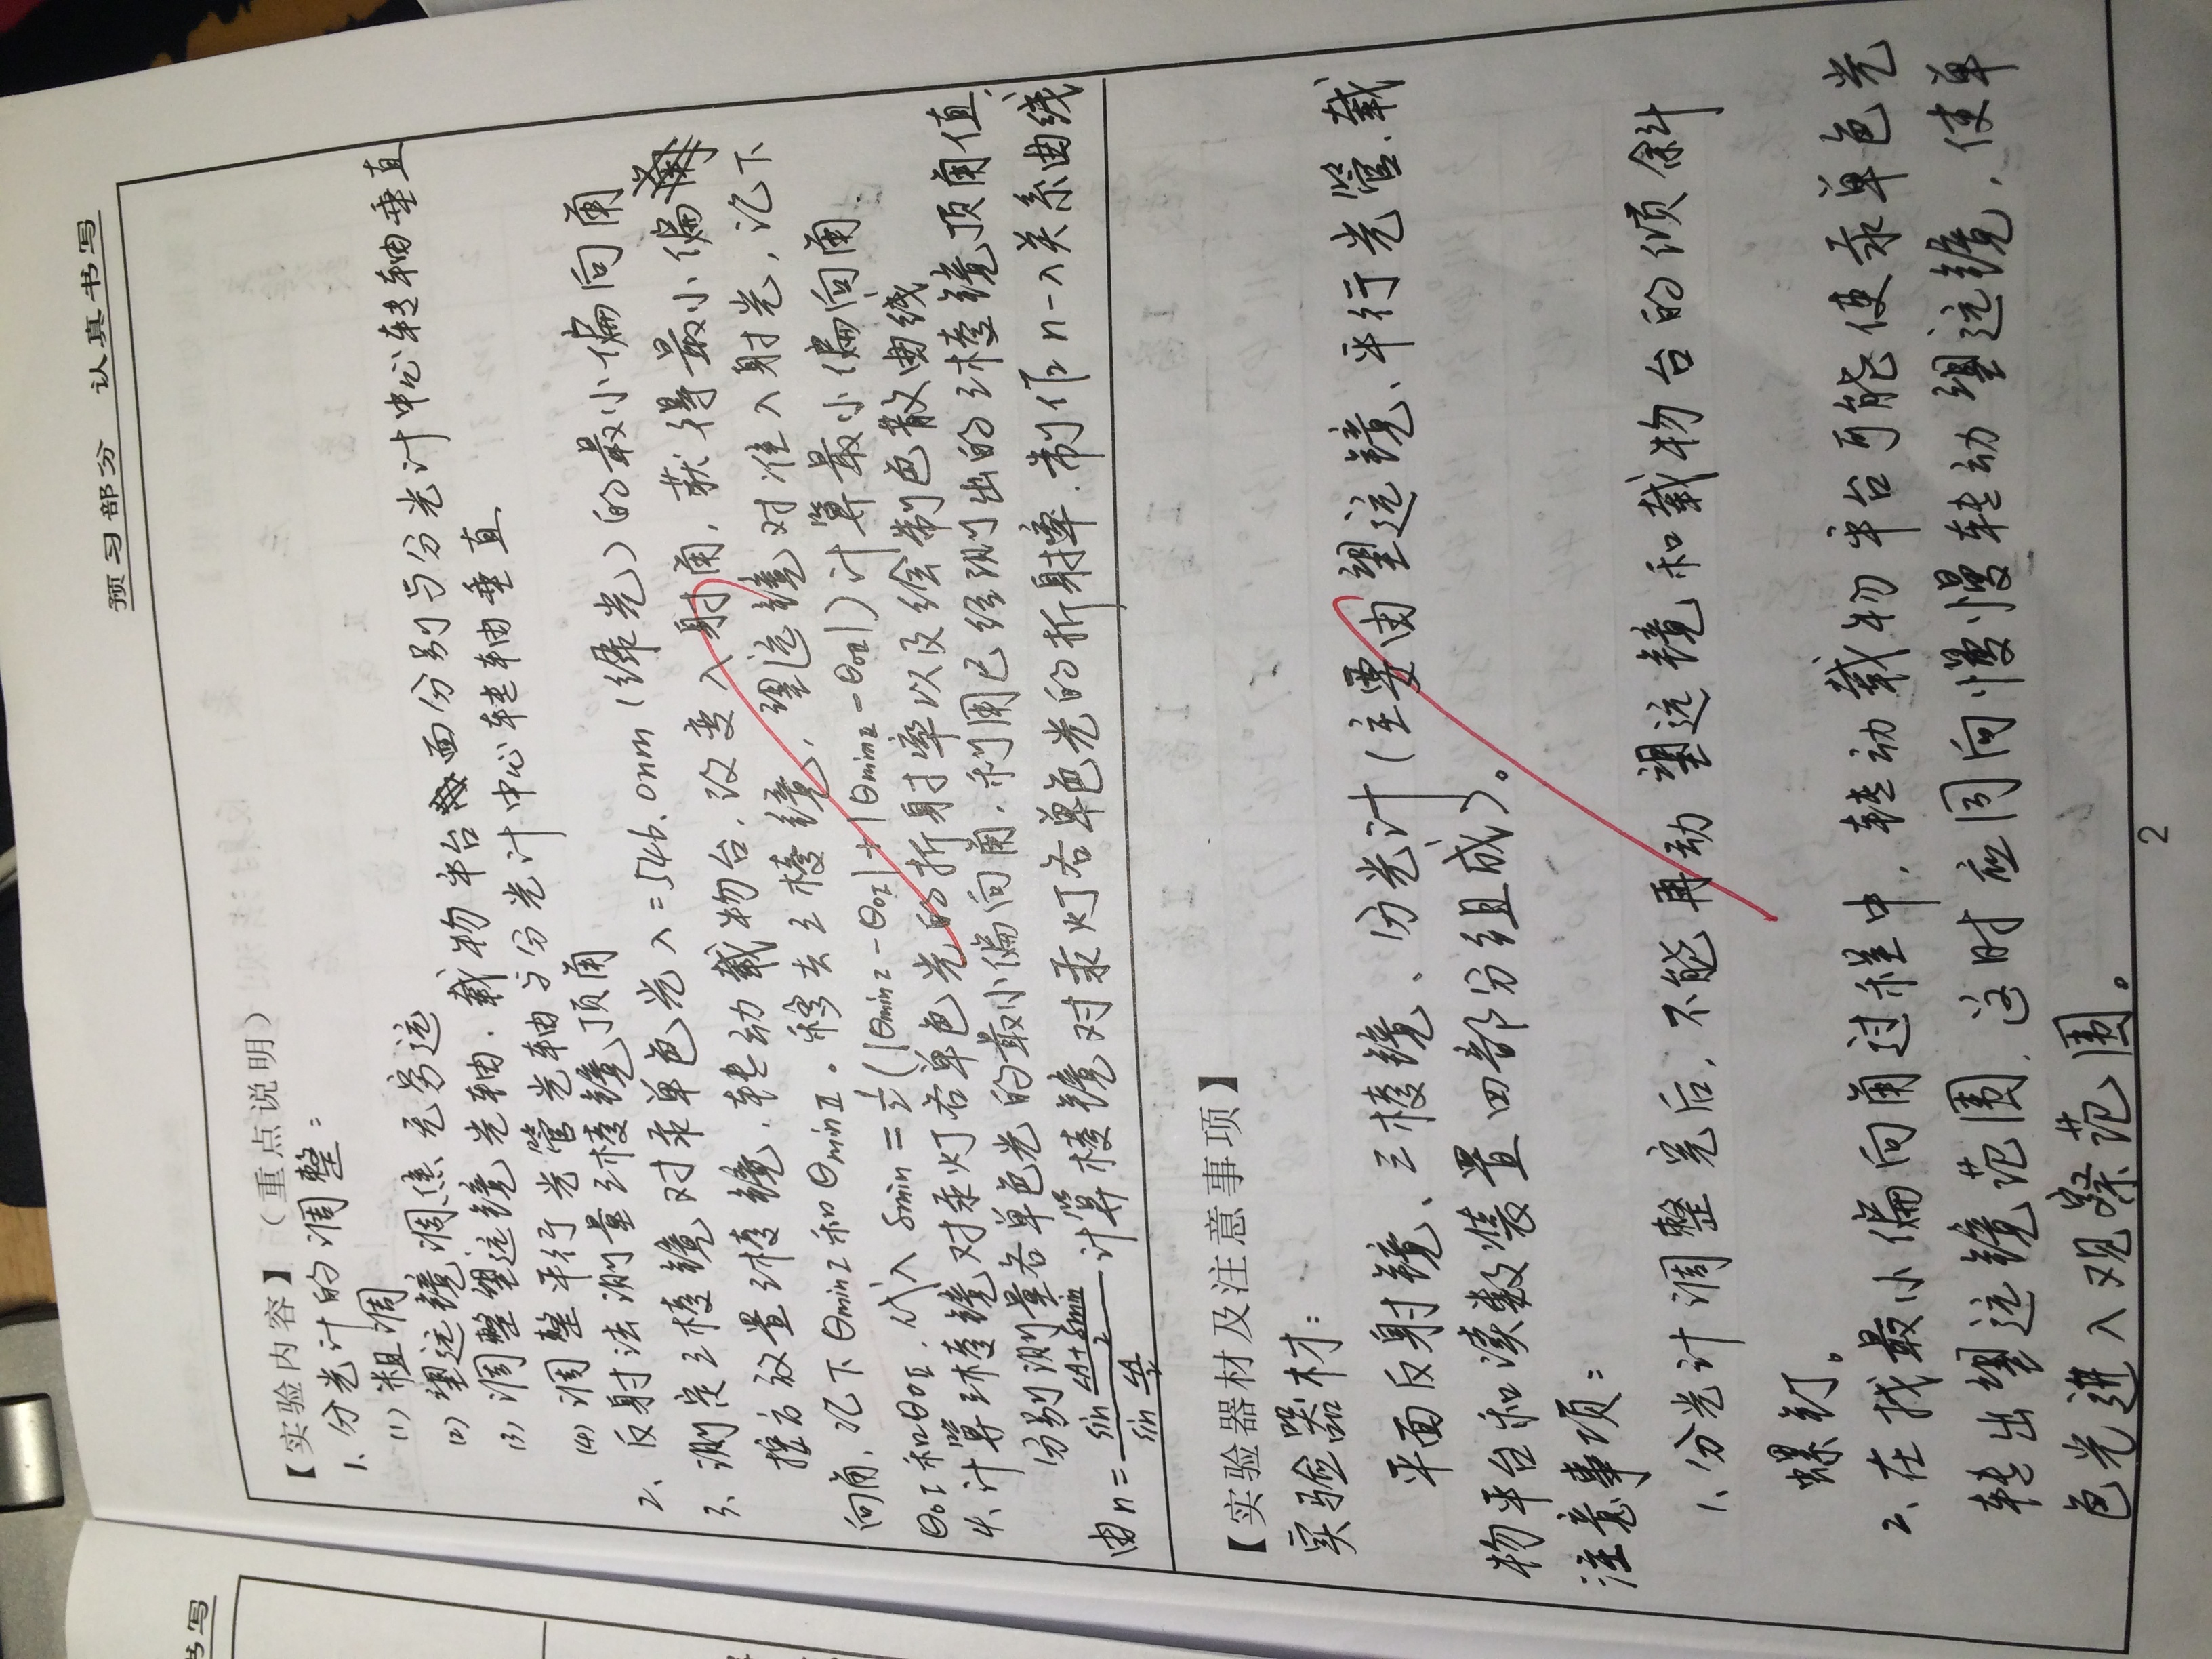 预习部分 认真书写
书写
【实验内容】（重点说明）
1、分光计的调整：
(1) 粗调
(2) 望远镜调焦无穷远
(3) 调整望远镜光轴、载物平台面分别与分光计中心转轴垂直
(4) 调整平行光管光轴与分光计中心转轴垂直
2、反射法测量三棱镜顶角
3、测定三棱镜对汞单色光λ=546.0nm（绿光）的最小偏向角
按方放置三棱镜，转动载物台，改变入射角，获得最小偏
向角，记下θminⅠ和θminⅡ。移去三棱镜，望远镜对准入射光，记下
θ0Ⅰ和θ0Ⅱ，代入 δmin=½(|θminⅠ-θ0Ⅰ|+|θminⅡ-θ0Ⅱ|)计算最小偏向角.
4、计算三棱镜对汞灯各单色光的折射率以及绘制色散曲线
分别测量各单色光的最小偏向角，利用已经测出的三棱镜顶角值，
由n=sin((∠A+δmin)/2)/sin(∠A/2) 计算棱镜对汞灯各单色光的折射率，制作n-λ关系曲线
【实验器材及注意事项】
实验器材：
平面反射镜、三棱镜、分光计（主要由望远镜、平行光管、载
物平台和读数装置四部分组成）。
注意事项：
1、分光计调整完后，不能再动望远镜和载物台的倾斜
螺钉。
2、在找最小偏向角过程中，转动载物平台可能使汞单色光
转出望远镜范围，这时应同向慢慢转动望远镜，使单
色光进入观察范围。
2